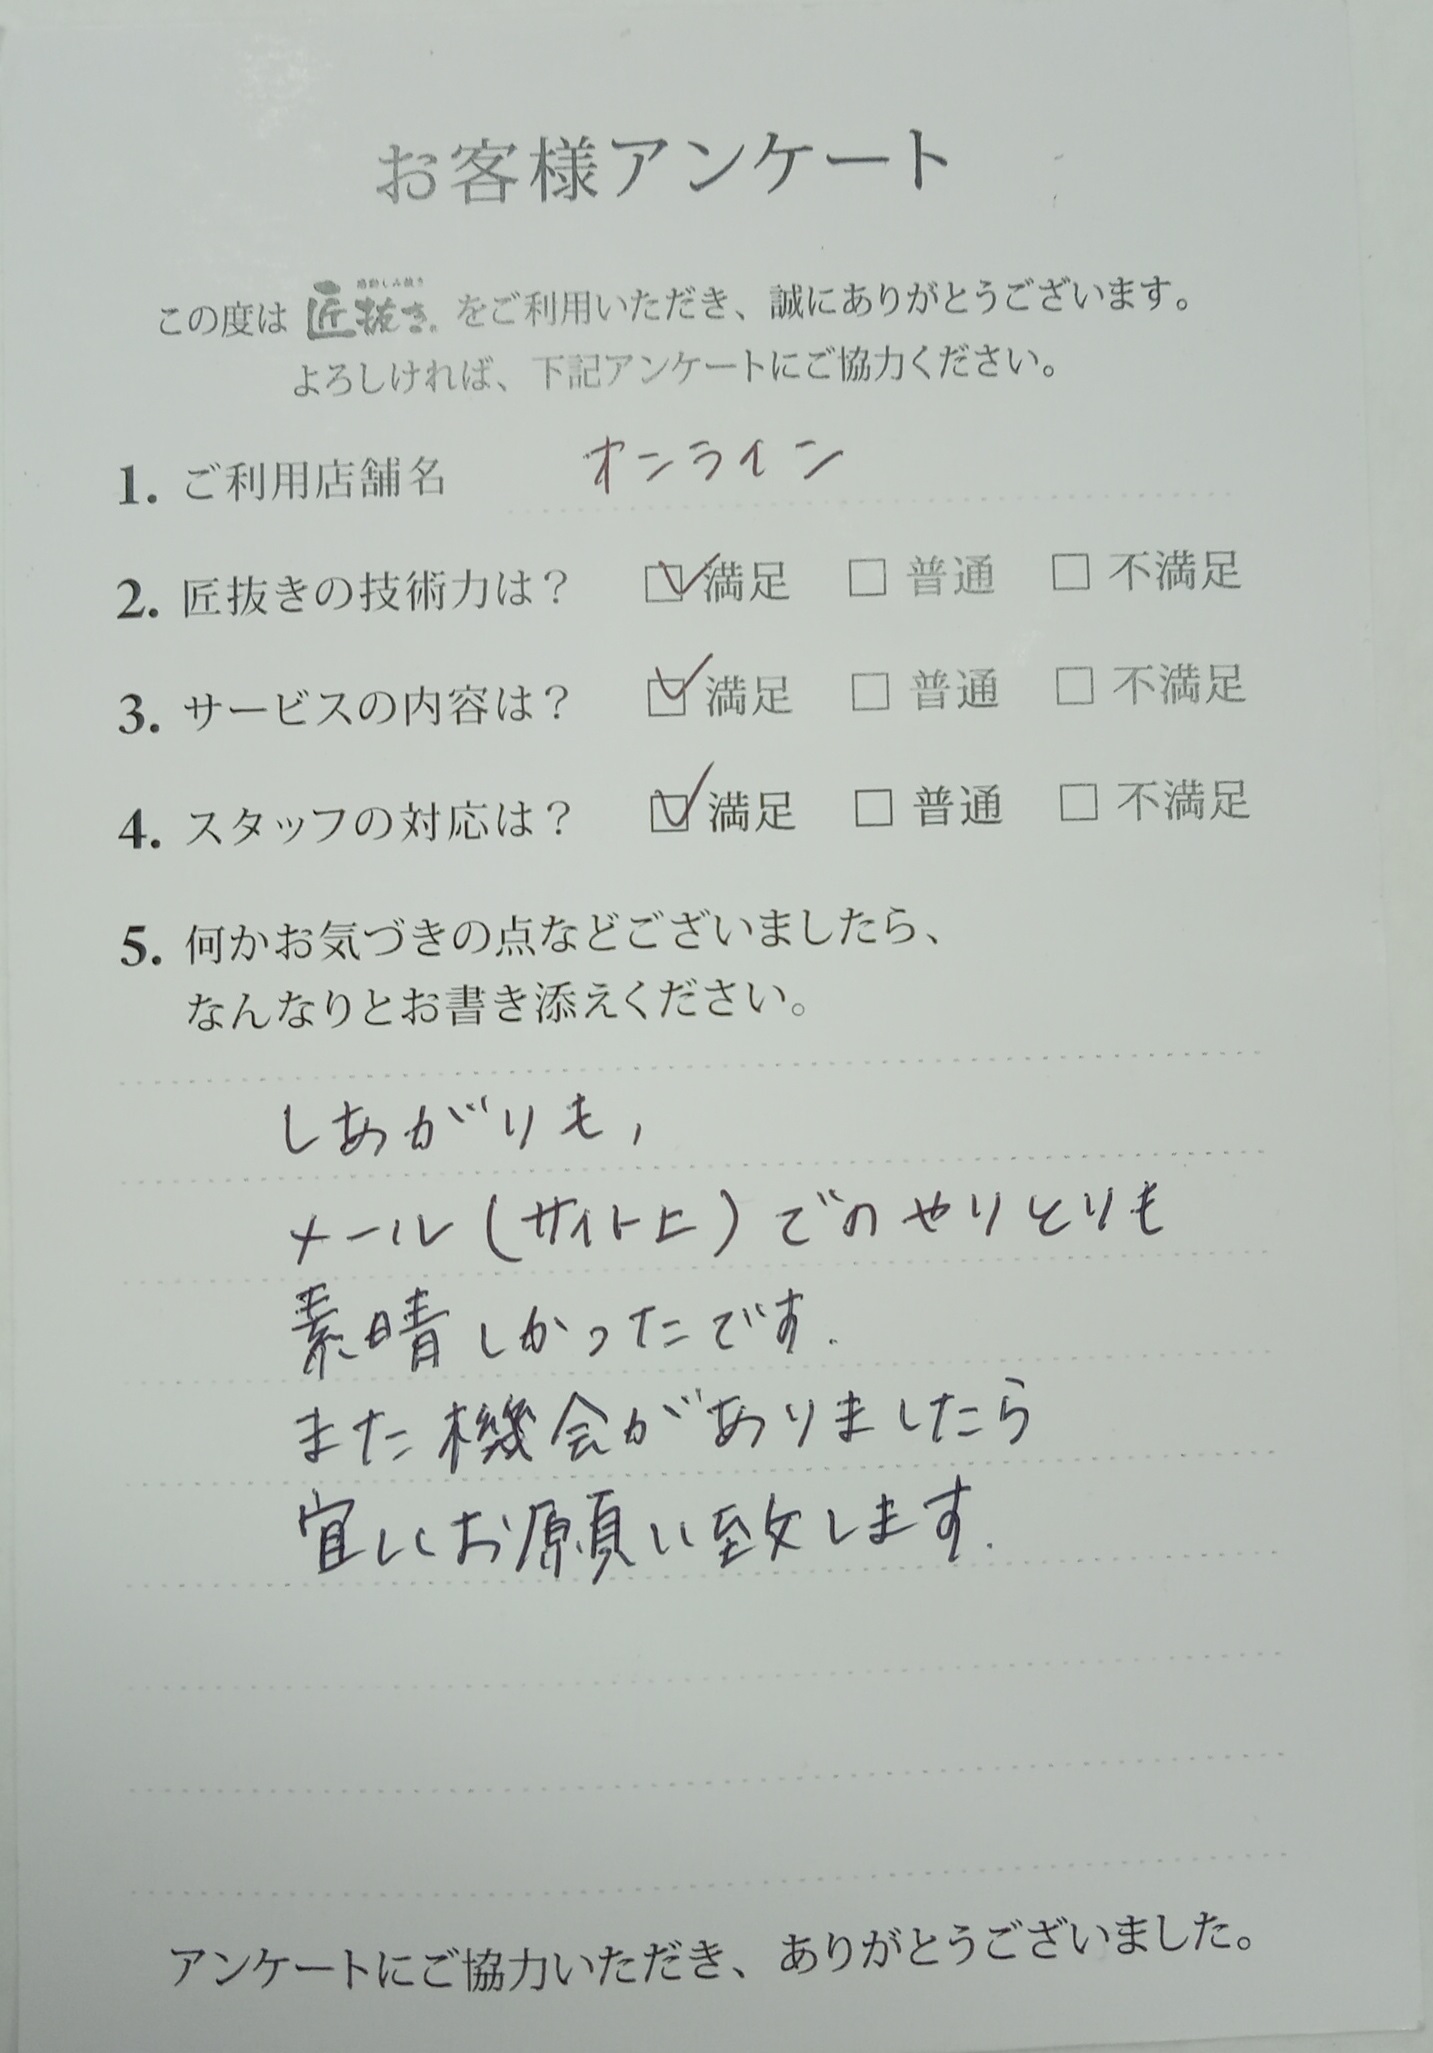 お客様アンケート
この度は 匠抜き をご利用いただき、誠にありがとうございます。
よろしければ、下記アンケートにご協力ください。
1. ご利用店舗名 オンライン
2. 匠抜きの技術力は？ ☑ 満足 □ 普通 □ 不満足
3. サービスの内容は？ ☑ 満足 □ 普通 □ 不満足
4. スタッフの対応は？ ☑ 満足 □ 普通 □ 不満足
5. 何かお気づきの点などございましたら、
なんなりとお書き添えください。
しあがりも,
メール(サイト上)でのやりとりも
素晴しかったです.
また機会がありましたら
宜しくお願い致します.
アンケートにご協力いただき、ありがとうございました。